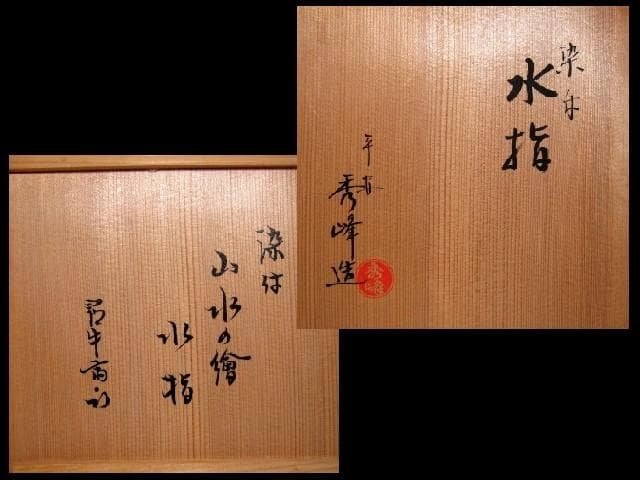 染付
水指
平安
秀峰造
秀峰
染付
山水の繪
水指